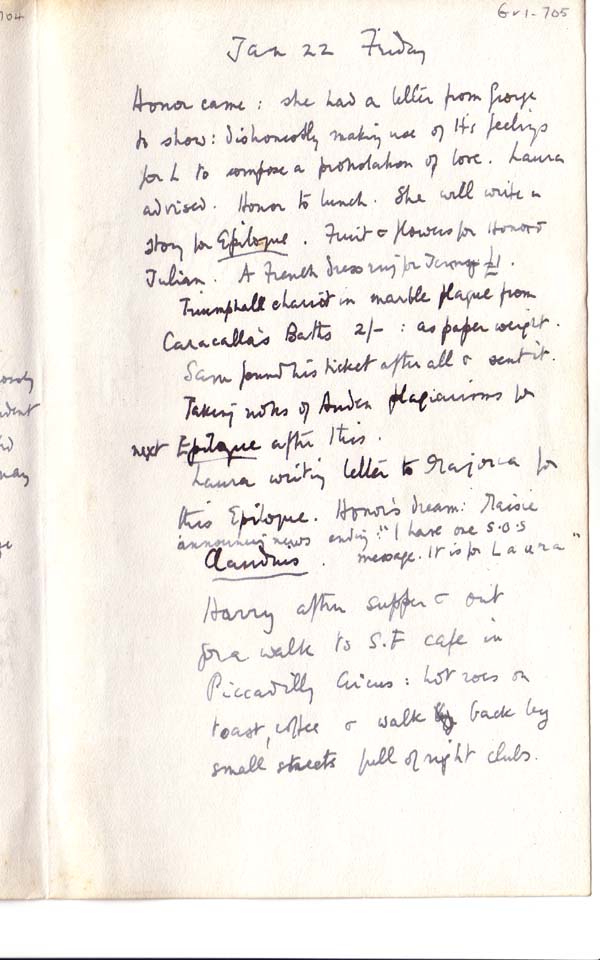 704
Gr1-705
Jan 22 Friday
Honor came: she had a letter from George
to show: dishonestly making use of H's feelings
for L to compose a protestation of love. Laura
advised. Honor to lunch. She will write a
story for Epilogue. Fruit & flowers for Honor &
Julian. A French dressing for Jenny £1.
Triumphall chariot in marble plaque from
Caracalla's Baths 2/- : as paper weight.
Sam found his ticket after all & sent it.
Taking notes of Auden plagiarisms for
next Epilogue after this.
Laura writing letter to Majorca for
this Epilogue. Honor's dream: Maisie
announcing news ending: "I have one S.O.S
message. It is for Laura"
Claudius.
Harry after supper & out
for a walk to S.F cafe in
Piccadilly Circus: hot roes on
toast, coffee & walk back by
small streets full of night clubs.